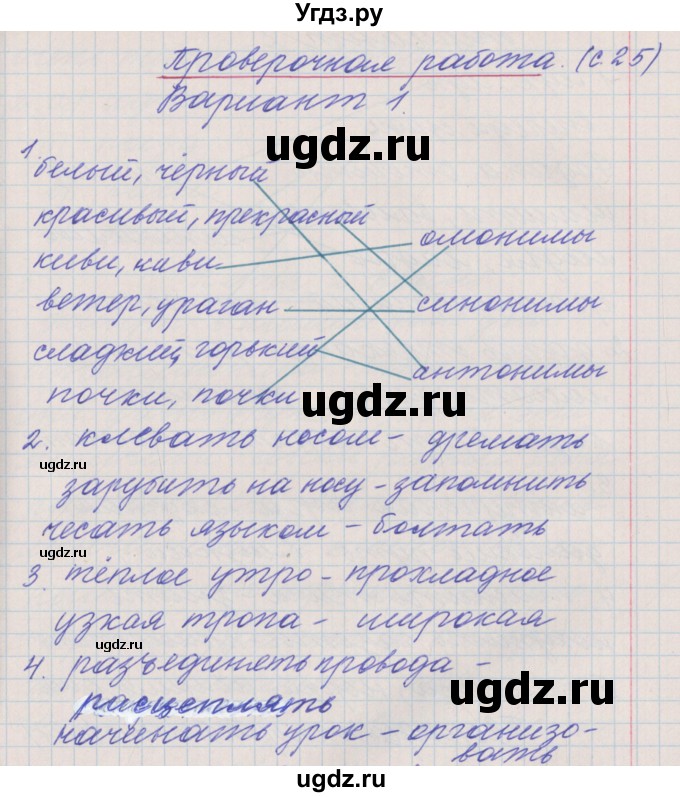 Угдз.ру
Проверочная работа. (с 25)
Вариант 1
ugdz.ru
1. белый, чёрный
красивый, прекрасный
омонимы
киви, киви
ugdz.ru
ветер, ураган
синонимы
сладкий, горький
антонимы
почки, почки
ugdz.ru
2. клевать носом - дремать
ugdz.ru
зарубить на носу - запомнить
чесать языком - болтать
ugdz.ru
3. тёплое утро - прохладное
узкая тропа - широкая
ugdz.ru
4. разъединять провода -
ugdz.ru
расцеплять
начинать урок - организо-
вать
ugdz.ru